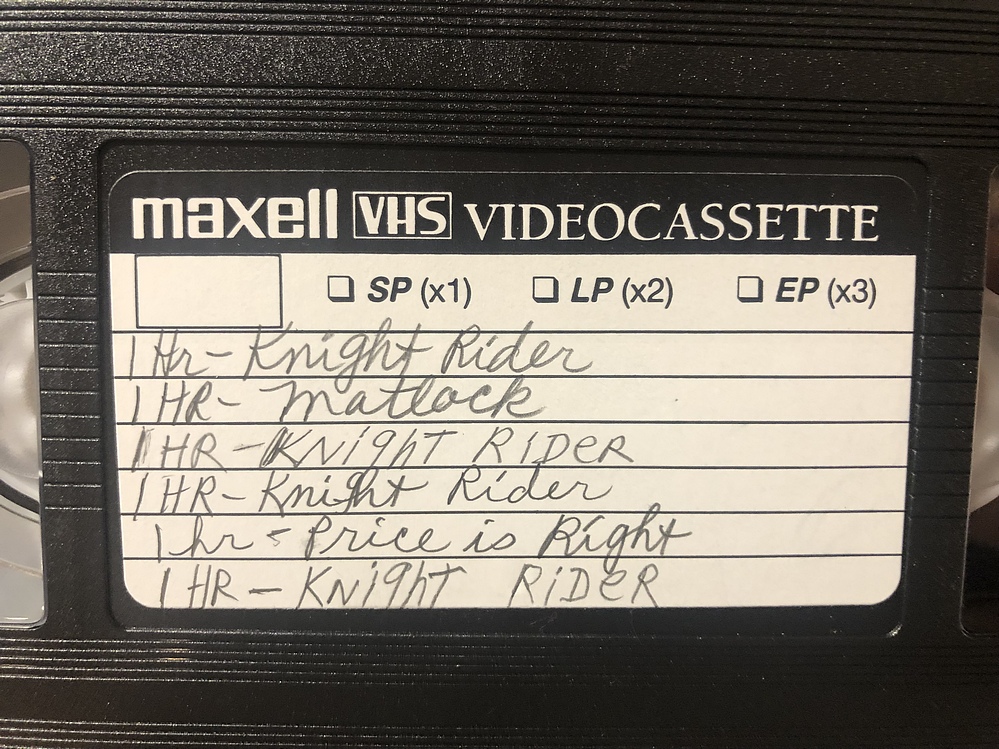 maxell VHS VIDEOCASSETTE
SP (x1) LP (x2) EP (x3)
1 Hr - Knight Rider
1 HR - Matlock
1 HR - KNighT RiDeR
1 HR - Knight Rider
1 hr - Price is Right
1 HR - KNighT RiDeR